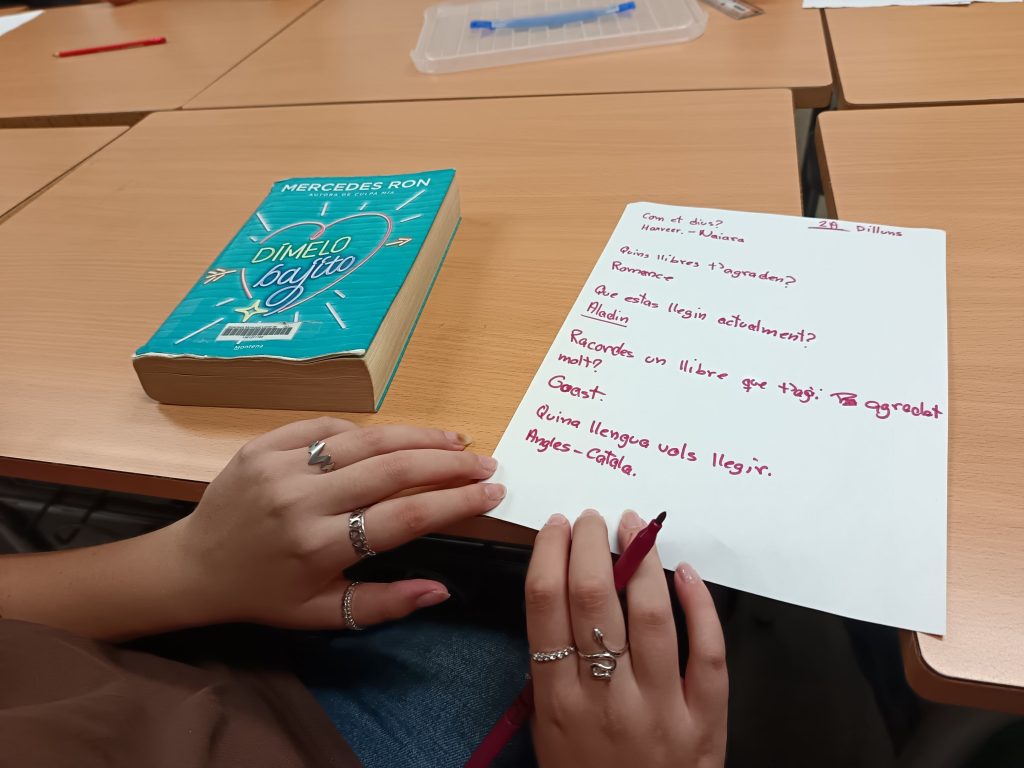 MERCEDES RON
AUTORA DE CULPA MÍA
DÍMELO
bajito
Montena
2A Dilluns
Com et dius?
Harveer. - Naiara
Quins llibres t'agraden?
Romance
Que estas llegin actualment?
Aladin
Racordes un llibre que t'agi agradat
molt?
Goast.
Quina llengua vols llegir.
Angles - Catala.